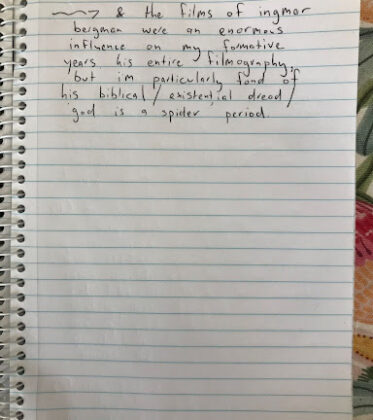 & the films of ingmar
bergman were an enormous
influence on my formative
years, his entire filmography,
but im particularly fond of
his biblical / existential dread /
god is a spider period.